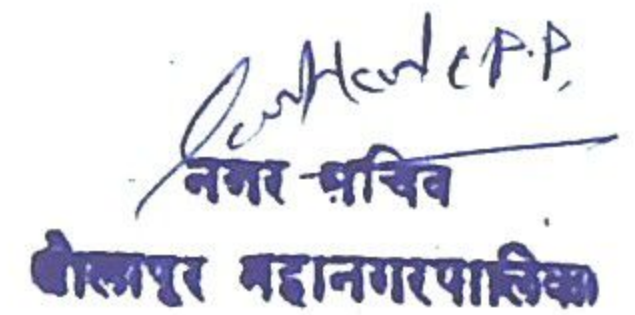 P.P.
नगर सचिव
सोलापुर महानगरपालिका